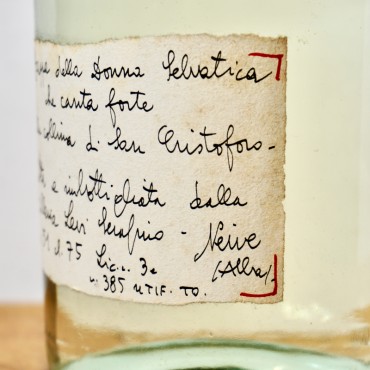 della Donna Selvatica
che canta forte
collina di San Cristoforo -
e imbottigliata dalla
Levi Serafino - Neive
d. 75 Lic. n. 3e (Alba).
n. 385 UTIF. TO.